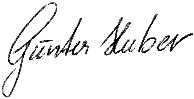 Günter Huber